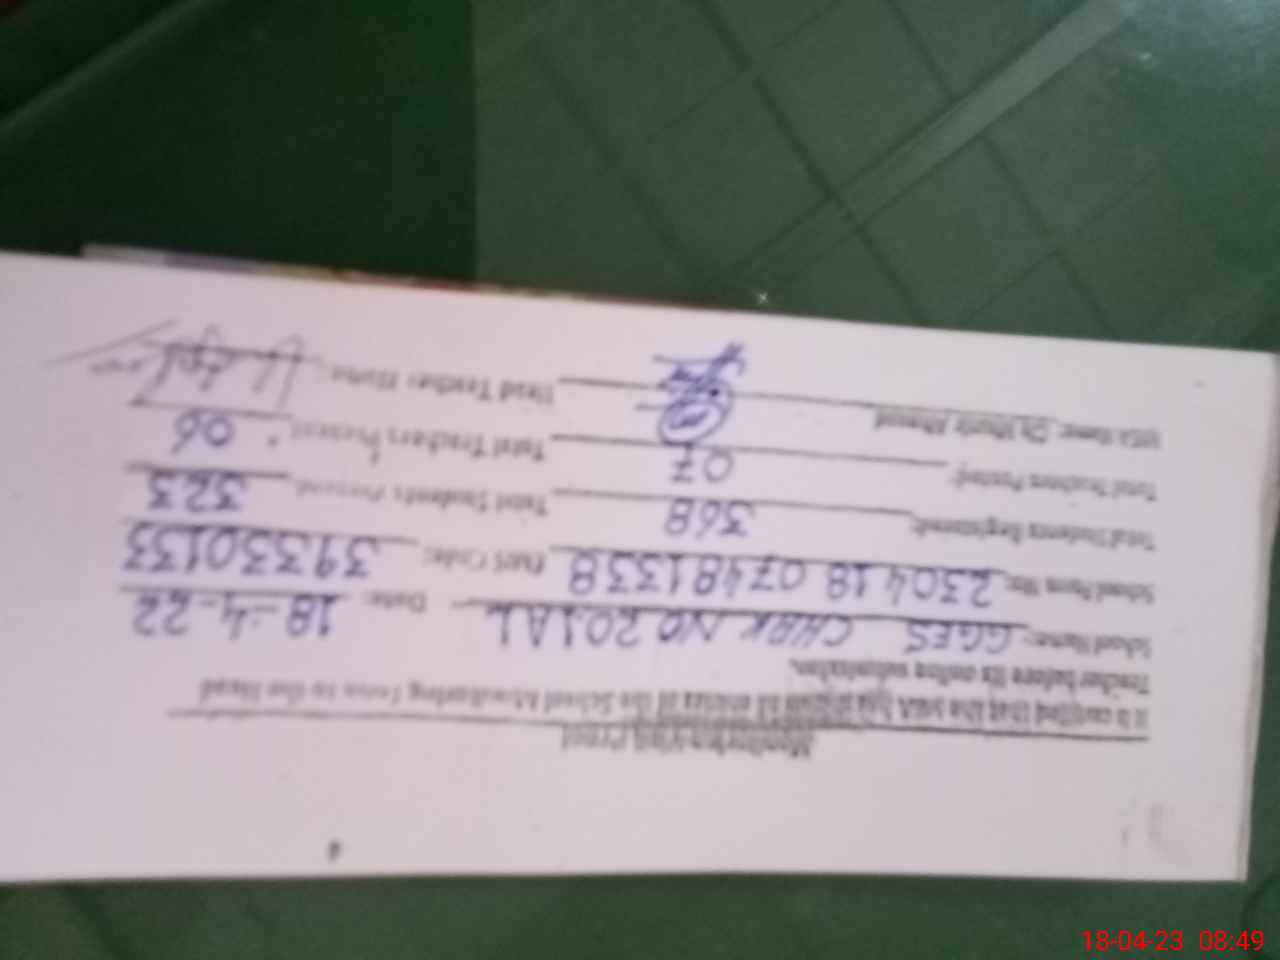 Monitoring Visit Proof
It is certified that the MEA has shared all entries of the School Monitoring Form to the Head
Teacher before its online submission.
School Name: GGES CHAK NO 20.1AL Date: 18-4-22
School Form No: 230418 07481338 EMIS Code: 39330133
Total Students Registered: 368 Total Students Present 323
Total Teachers Posted: 07 Total Teachers Present 06
MEA Name: Munir Ahmed Head Teacher Name
18-04-23 08:49